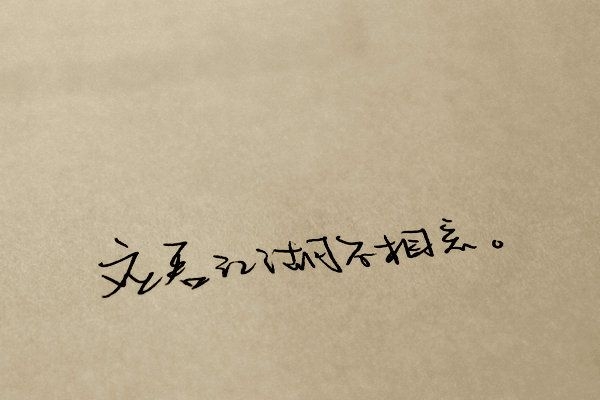 君江湖不相忘。